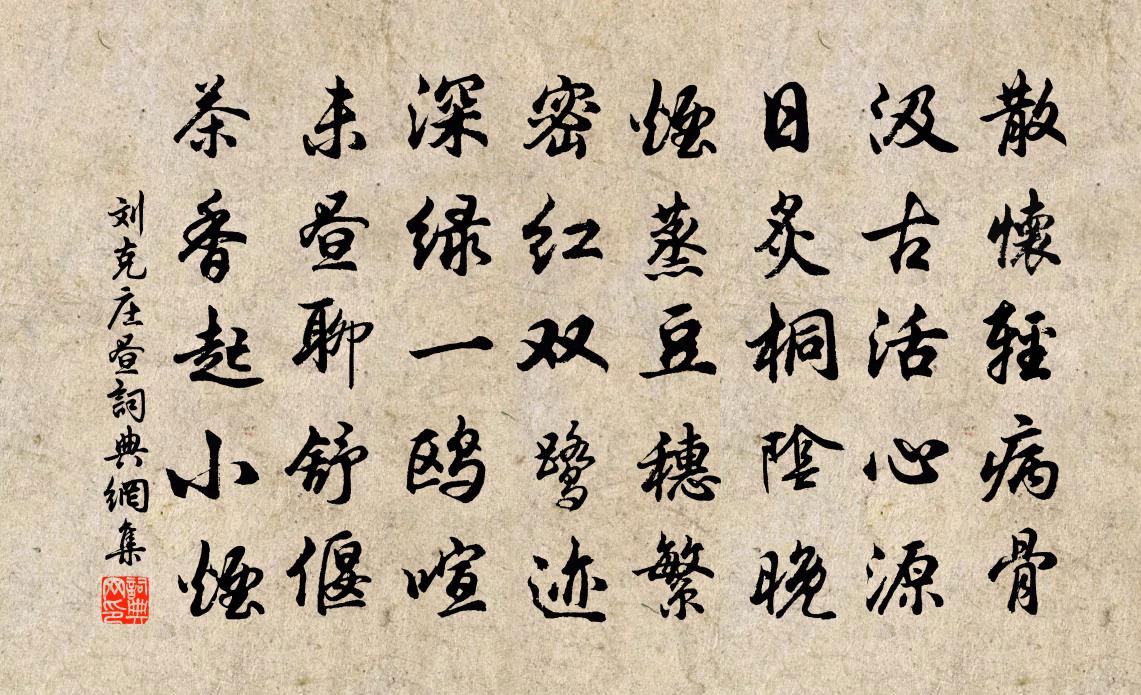 散懷輕病骨
汲古活心源
日炙桐陰晚
煙蒸豆穗繁
密红双鹭迹
深绿一鸥喧
未昼聊舒偃
茶香起小煙
刘克庄昼詞典網集
詞典網印